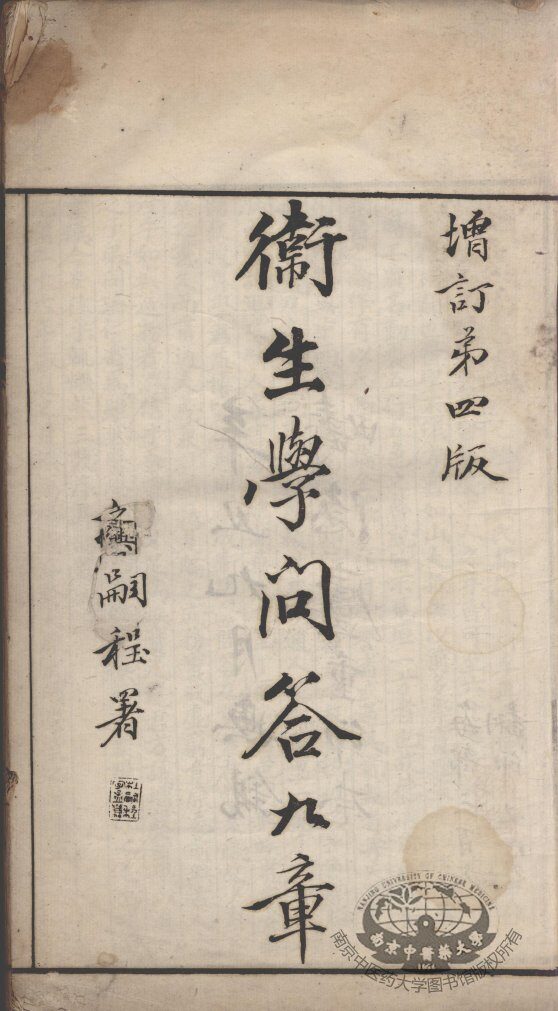 增訂第四版
衞生學問答九章
嗣程署
NANJING UNIVERSITY OF CHINESE MEDICINE
南京中醫藥大學
南京中医药大学图书馆版权所有